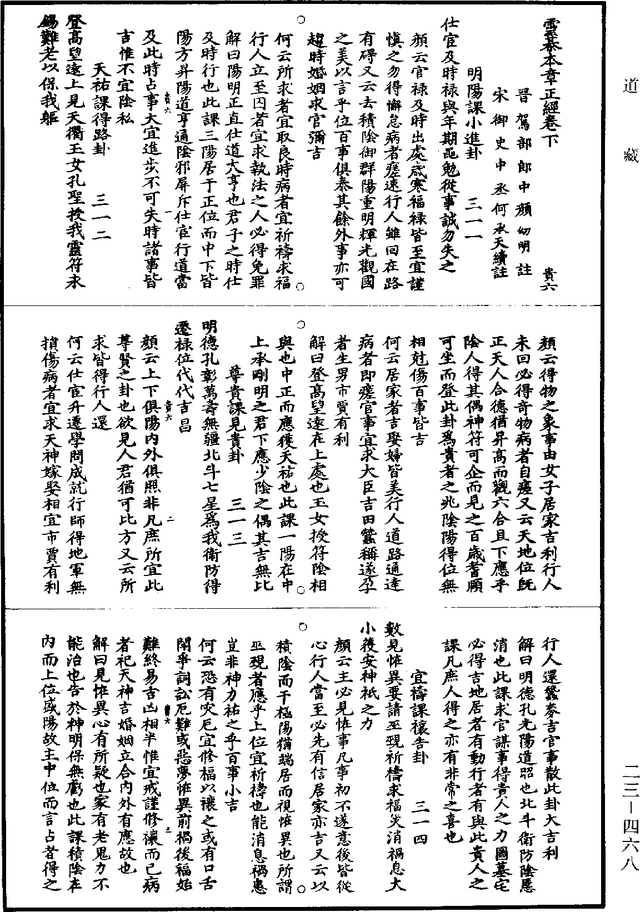 道藏
靈棊本章正經卷下
貴六
晉駕部郎中顏幼明註
宋御史中丞何承天續註
明陽課小進卦　三一一
仕宦及時祿與年期黽勉從事誠勿失之
顏云官祿及時出處咸寒福祿皆至宜謹
慎之勿得懈怠病者瘥速行人雖回在路
有碍又云去積陰御群陽重明輝光觀國
之美以言乎位百事俱泰其餘外事亦可
超時婚姻求官彌吉
何云所求者宜取良時病者宜祈禱求福
行人立至囚者宜求執法之人必得免罪
解曰陽明正直仕道大亨也君子之時仕
及時行也此課三陽居于正位而中下皆
陽方昇陽道亨通陰邪屏斥仕宦行道當
及此時占事大宜進步不可失時諸事皆
吉惟不宜陰私
天祐課得路卦　三一二
登高望遠上見天衢玉女孔聖授我靈符永
錫難老以保我軀
顏云得物之象事由女子居家吉利行人
未回必得奇物病者自瘥又云天地位既
正天人合德猶昇高而觀六合且下應乎
陰人得其偶神符可企而見之百歲耆頤
可坐而登此卦為貴者之兆陰陽得位無
相尅傷百事皆吉
何云居家者吉娶婦皆美行人道路通達
病者即瘥官事宜求大臣吉田蠶稱遂孕
者生男市賈有利
解曰登高望遠在上處也玉女授符陰相
與也中正而應獲天祐也此課一陽在中
上承剛明之君下應少陰之偶其吉無比
尊貴課見貴卦　三一三
明德孔彰萬壽無疆北斗七星為我衛防得
遷祿位代代吉昌
顏云上下俱陽內外俱照非凡庶所宜此
尊賢之卦也欲見人君猶可比方又云所
求皆得行人還
何云仕宦升遷學問成就行師得地軍無
損傷病者宜求天神嫁娶相宜市賈有利
行人還蠶桑吉官事散此卦大吉利
解曰明德孔光陽道昭也北斗衛防陰慝
消也此課求官謀事得貴人之力圖墓宅
必得吉地居者有動行者有與此貴人之
課凡庶人得之亦有非常之喜也
宜禱課禳告卦　三一四
數見恠異要請巫覡祈禱求福災消禍息大
小後安神祇之力
顏云主必見恠事凡事初不遂意後皆從
心行人當至必先有信居家亦吉又云以
積陰而干極陽猶端居而視恠異也所謂
巫覡者應乎上位宜祈禱也能消息禍患
豈非神力祐之乎百事小吉
何云恐有災厄宜修福以禳之或有口舌
鬭爭詞訟厄難或惡夢恠異前禍後福始
難終易吉凶相半惟宜戒謹修禳而已病
者祀天神吉婚姻立合內外有應故也
解曰見恠異心有所疑也家有老鬼力不
能治也告於神明保無虧也此課積陰在
內而上位盛陽故主中位而言占者得之
二三－四六八